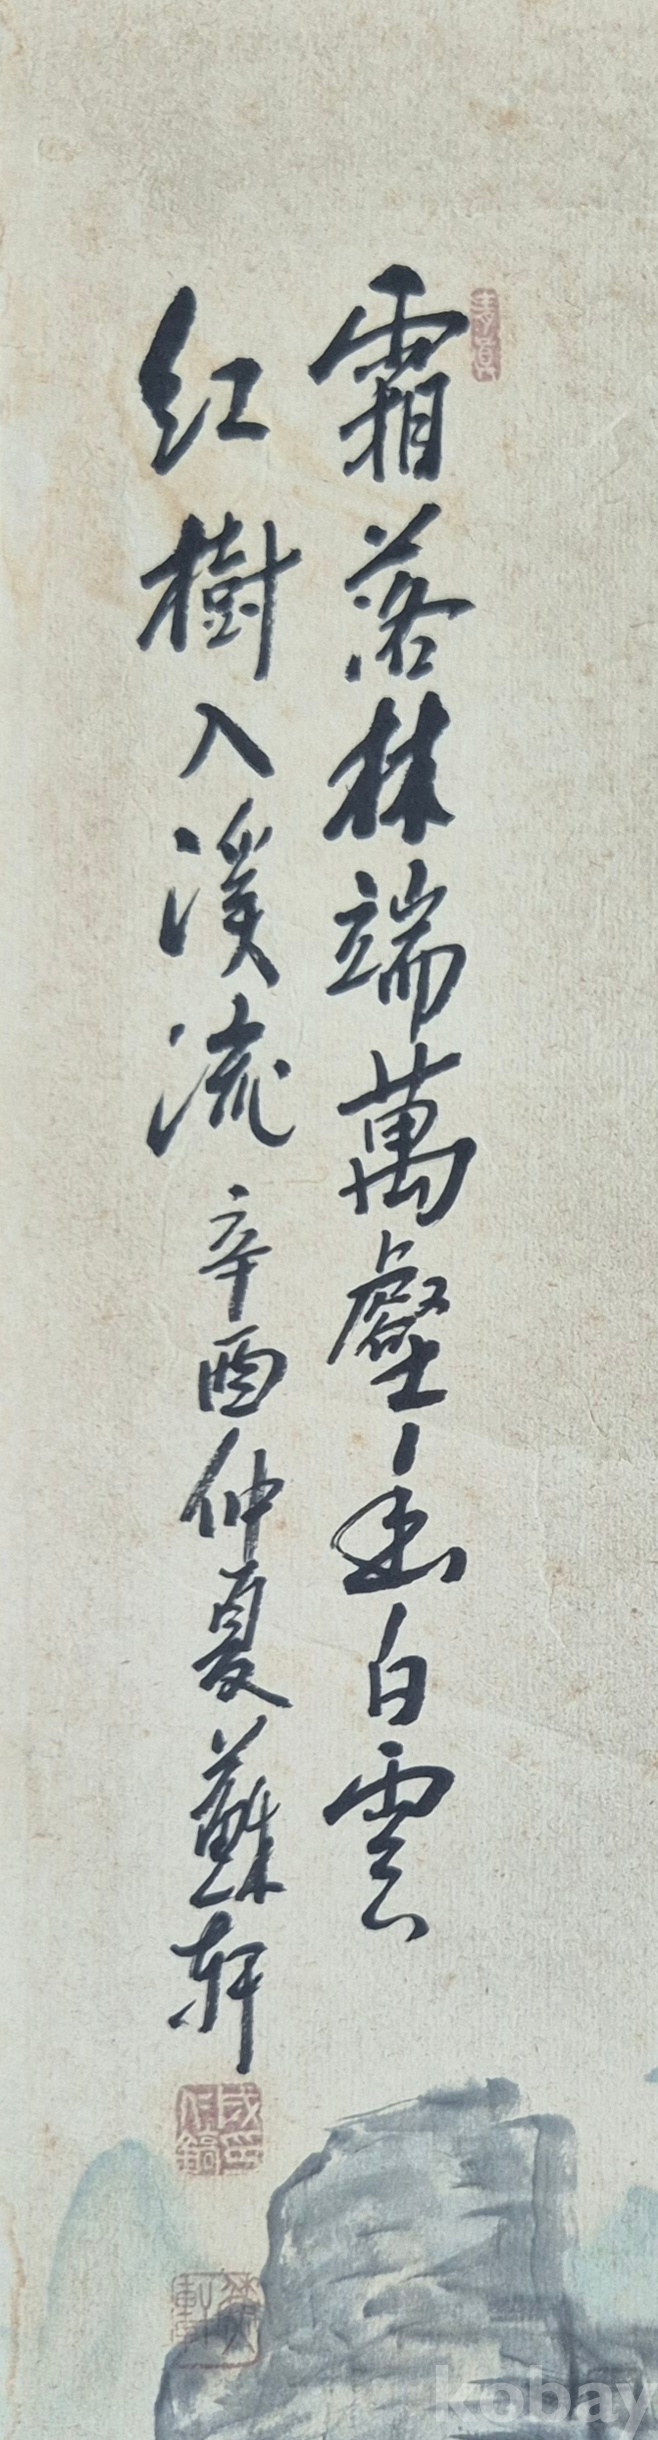 霜落林端萬壑幽白雲
紅樹入溪流辛酉仲夏蘇軒
kobay